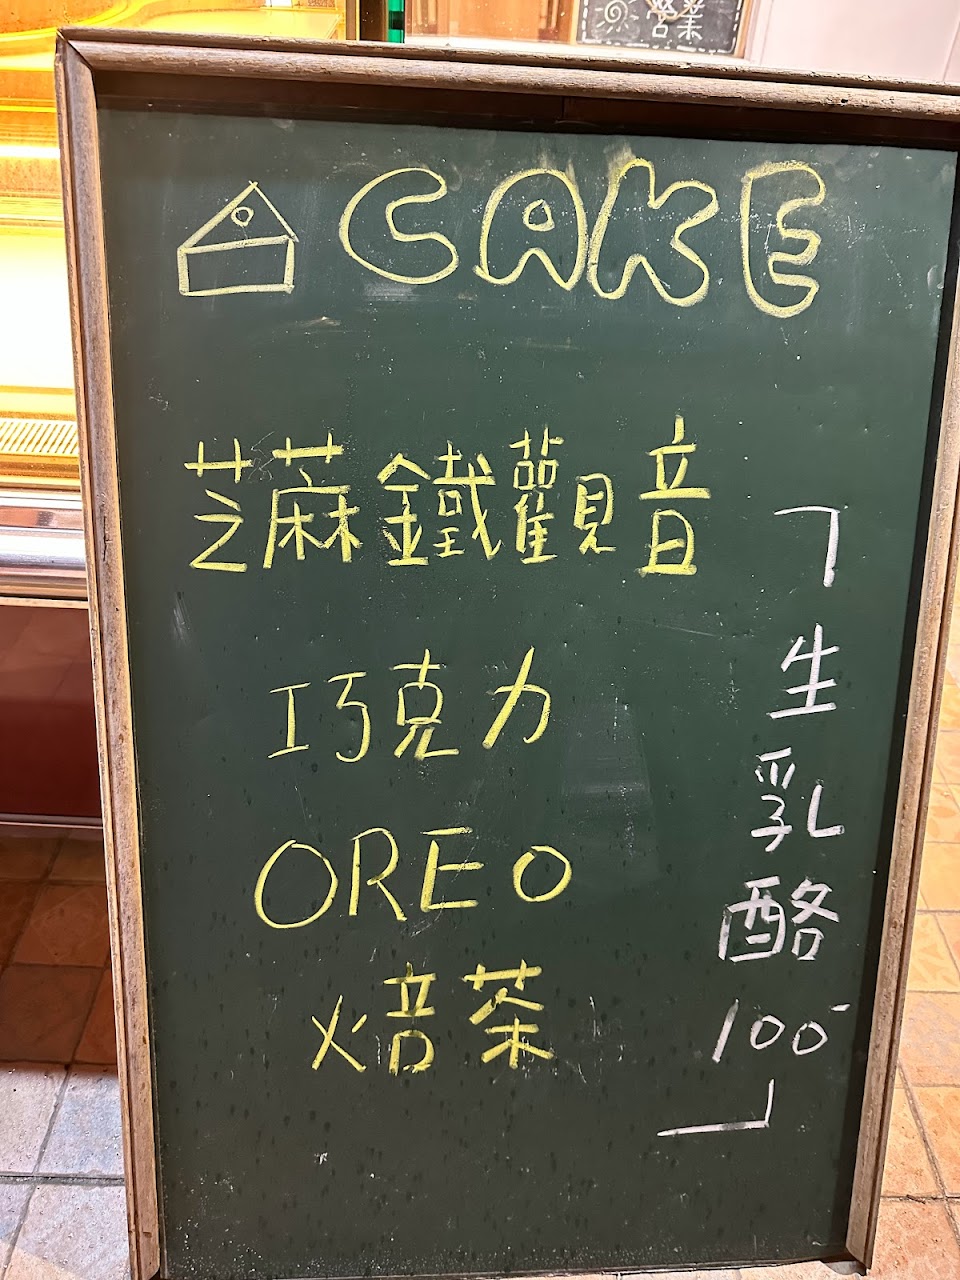 營業
CAKE
芝麻鐵觀音
巧克力
OREO
焙茶
「生乳酪100-」